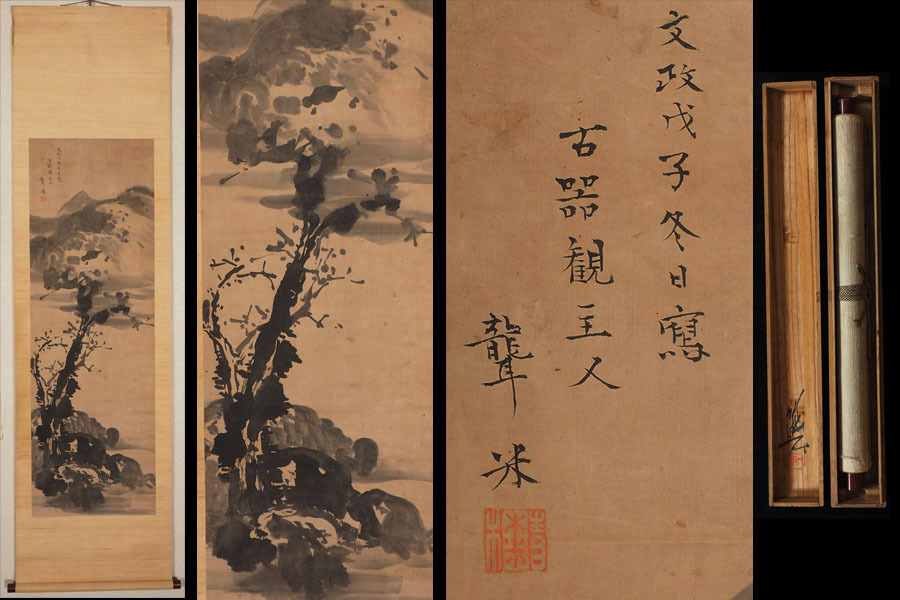 文政戊子冬日寫
古器観主人
聾米